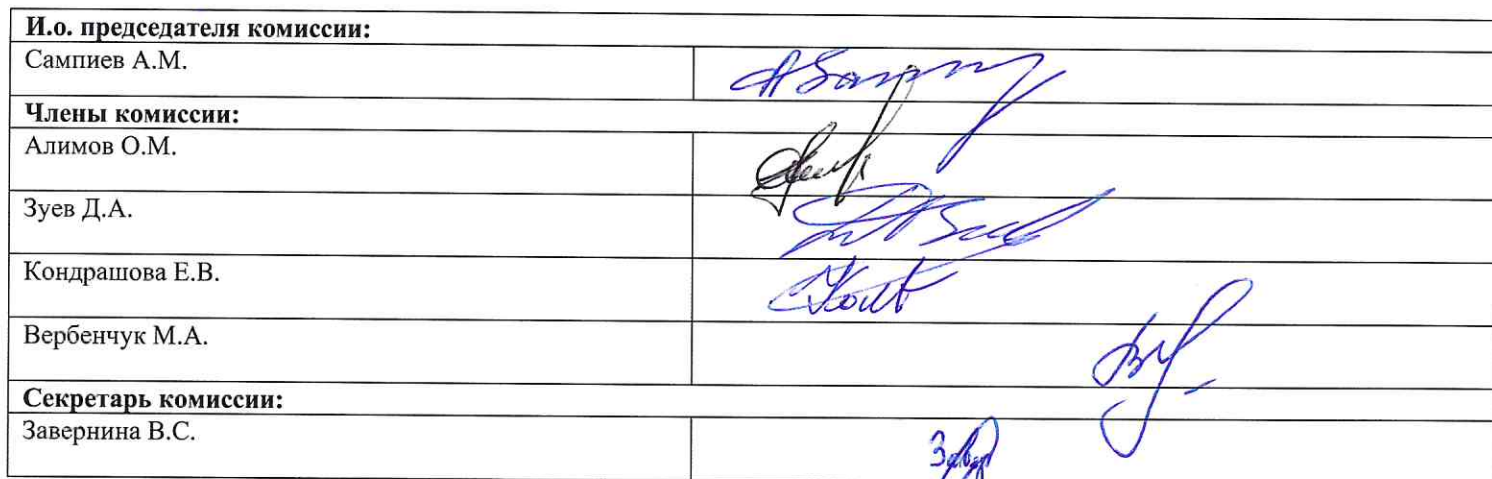 И.о. председателя комиссии:
Сампиев А.М.
Члены комиссии:
Алимов О.М.
Зуев Д.А.
Кондрашова Е.В.
Вербенчук М.А.
Секретарь комиссии:
Завернина В.С.